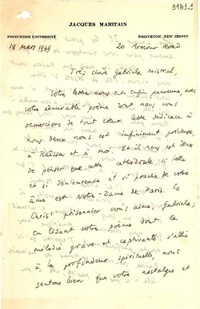 3183.1
JACQUES MARITAIN
PRINCETON UNIVERSITY PRINCETON, NEW JERSEY
18 Mars 1949 26 Armour Road
Très chère Gabriela Mistral,
Votre lettre nous est enfin parvenue avec
votre admirable poème dont nous vous
remercions de tout cœur. Cette dédicace à
nous deux nous est infiniment précieuse
à Raïssa et à moi. Et il nous est doux
de penser que cette cathédrale si belle
et si douloureuse et si proche de votre
âme est Notre-Dame de Paris. Le
Christ prisonnier vous aime, Gabriela;
en lisant votre poème dont la
mélodie grave et captivante s'allie
à la profondeur spirituelle, nous
sentons bien que votre nostalgie et